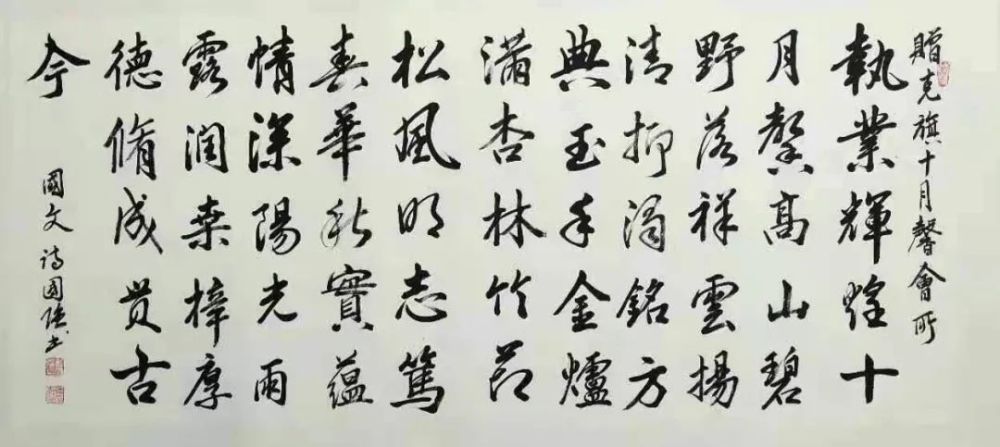 贈克旗十月馨會所
執業輝煌十
月馨高山碧
野落祥雲揚
清抑濁銘方
典玉手金爐
滿杏林竹節
松風明志篤
春華秋實蘊
情深陽光雨
露潤桑梓厚
德脩成貫古
今
國文詩國書